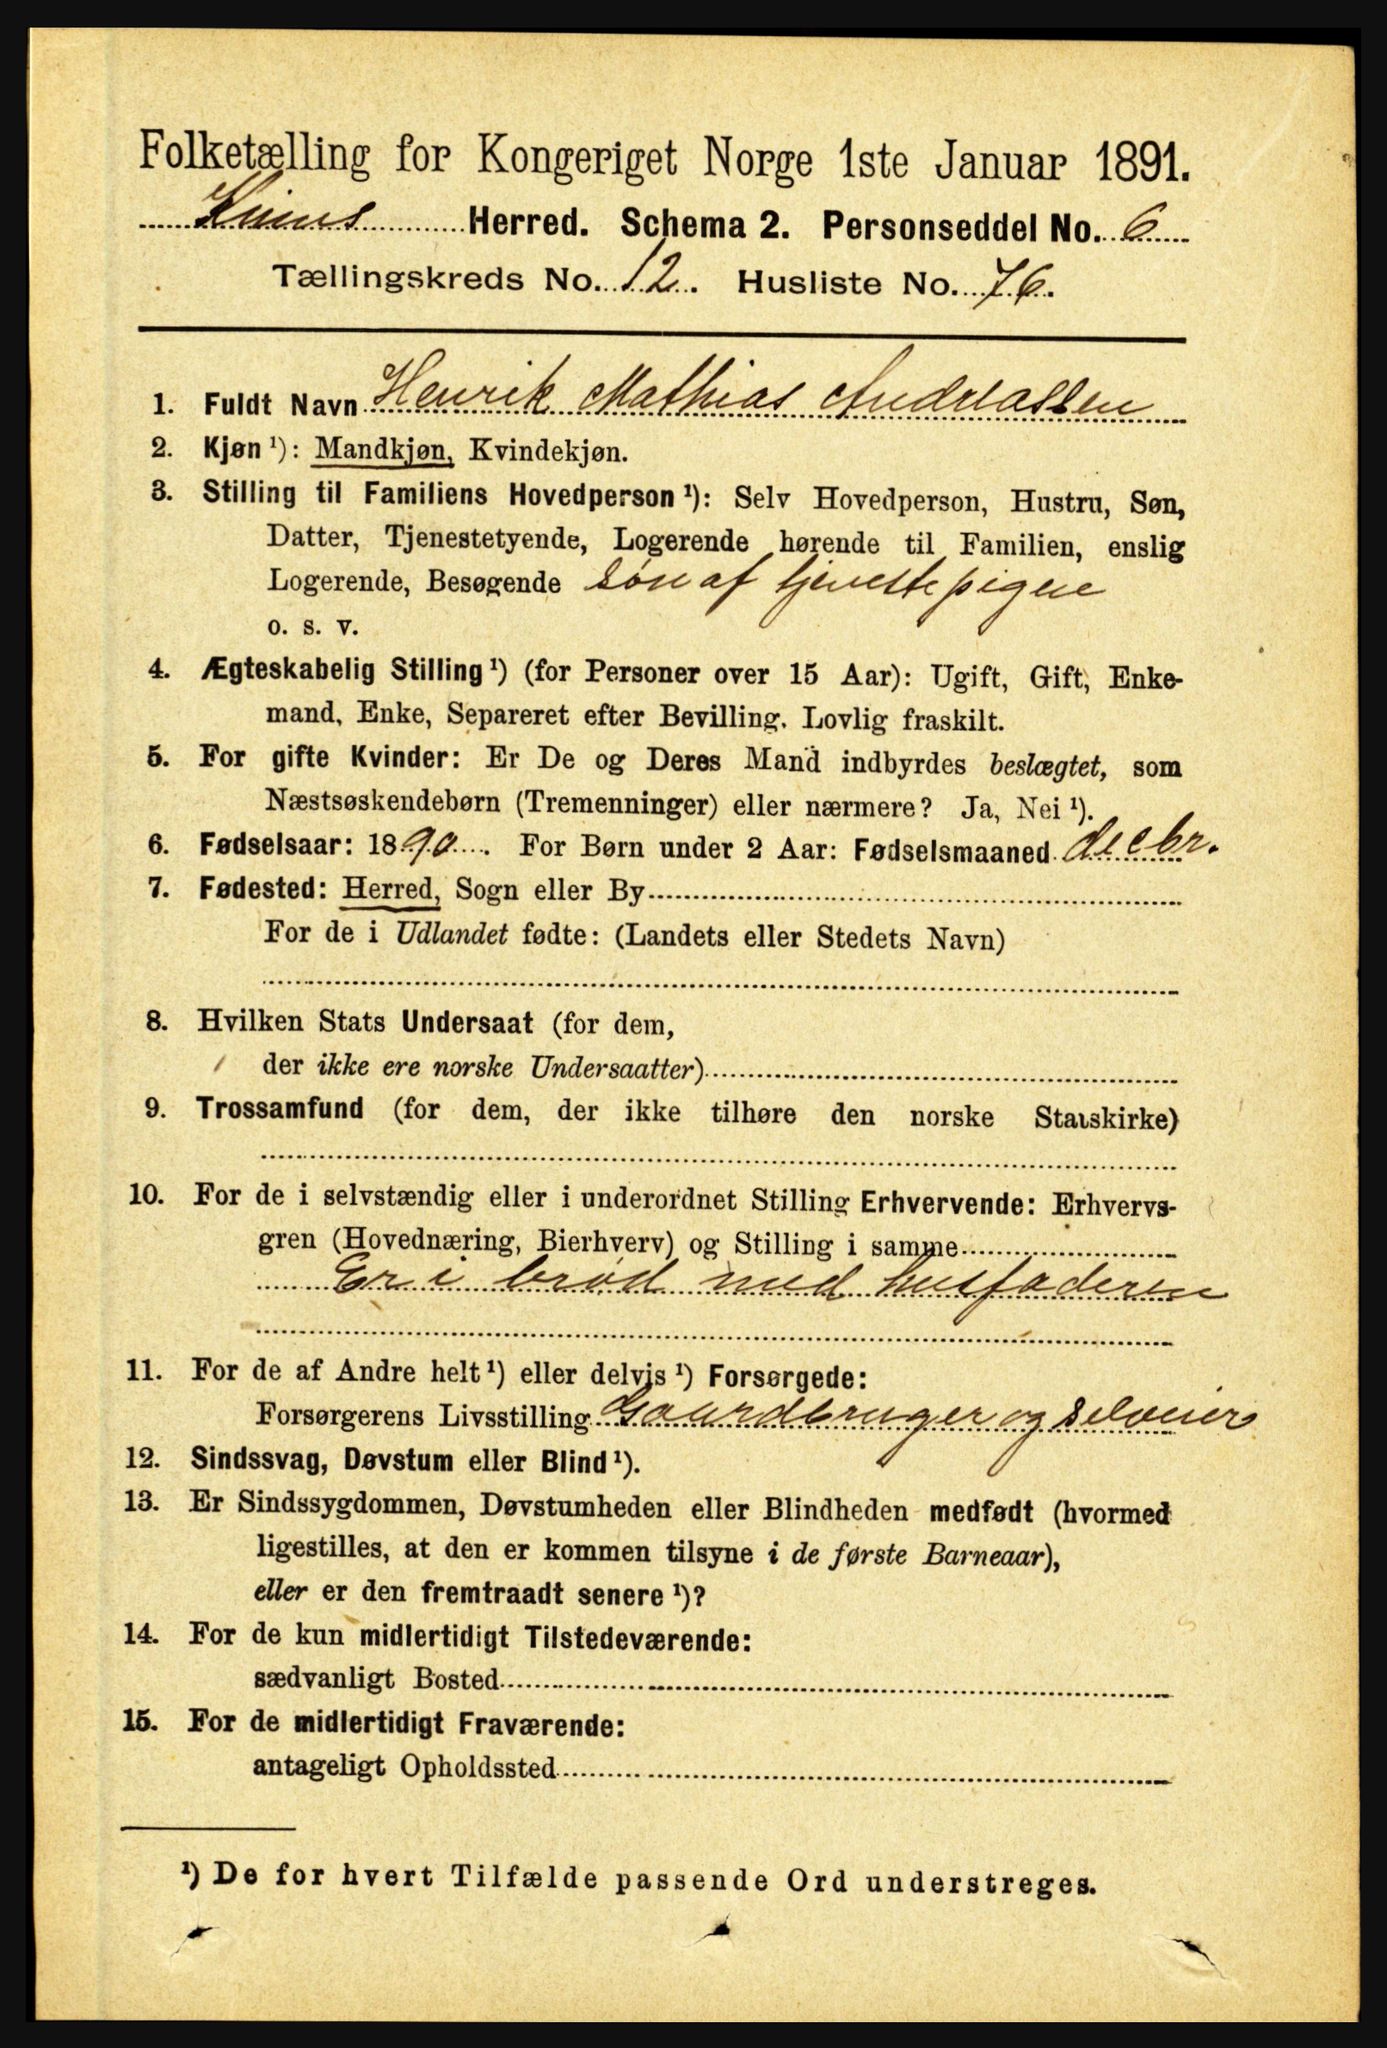 Folketælling for Kongeriget Norge 1ste Januar 1891.
Kinns Herred. Schema 2. Personseddel No. 6
Tællingskreds No. 12. Husliste No. 76.
1. Fuldt Navn Henrik Mathias Andreassen
2. Kjøn ¹): Mandkjøn, Kvindekjøn.
3. Stilling til Familiens Hovedperson ¹): Selv Hovedperson, Hustru, Søn,
Datter, Tjenestetyende, Logerende hørende til Familien, enslig
Logerende, Besøgende søn af tjenestepigen
o. s. v.
4. Ægteskabelig Stilling ¹) (for Personer over 15 Aar): Ugift, Gift, Enke-
mand, Enke, Separeret efter Bevilling. Lovlig fraskilt.
5. For gifte Kvinder: Er De og Deres Mand indbyrdes beslægtet, som
Næstsøskendebørn (Tremenninger) eller nærmere? Ja, Nei ¹).
6. Fødselsaar: 1890. For Børn under 2 Aar: Fødselsmaaned decbr.
7. Fødested: Herred, Sogn eller By
For de i Udlandet fødte: (Landets eller Stedets Navn)
8. Hvilken Stats Undersaat (for dem,
der ikke ere norske Undersaatter)
9. Trossamfund (for dem, der ikke tilhøre den norske Statskirke)
10. For de i selvstændig eller i underordnet Stilling Erhvervende: Erhvervs-
gren (Hovednæring, Bierhverv) og Stilling i samme
Er i brød med husfaderen
11. For de af Andre helt ¹) eller delvis ¹) Forsørgede:
Forsørgerens Livsstilling Gaardbruger og selveier
12. Sindssvag, Døvstum eller Blind ¹).
13. Er Sindssygdommen, Døvstumheden eller Blindheden medfødt (hvormed
ligestilles, at den er kommen tilsyne i de første Barneaar),
eller er den fremtraadt senere ¹)?
14. For de kun midlertidigt Tilstedeværende:
sædvanligt Bosted
15. For de midlertidigt Fraværende:
antageligt Opholdssted
¹) De for hvert Tilfælde passende Ord understreges.